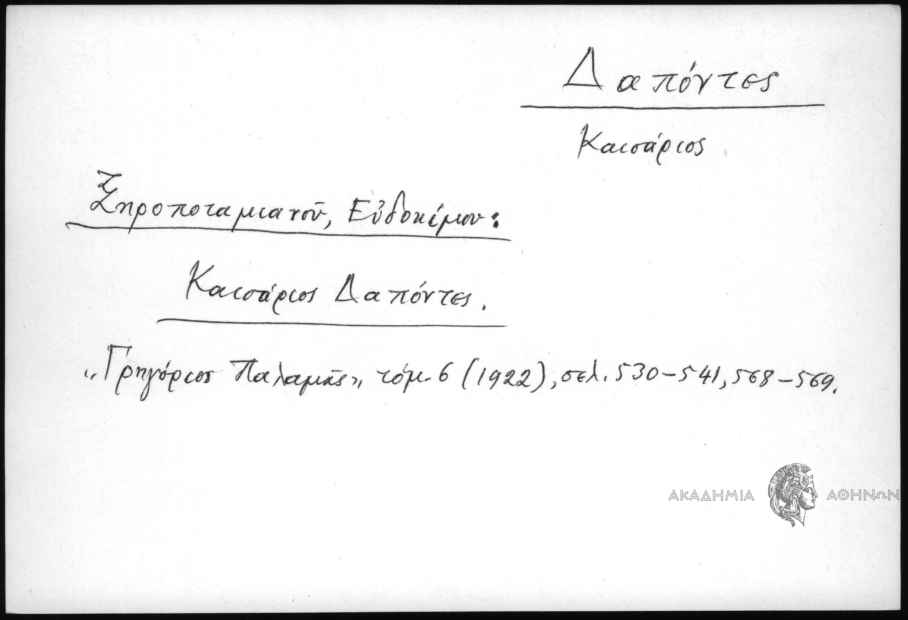 Δαπόντες
Καισάριος
Ξηροποταμιανοῦ, Εὐδοκίμου:
Καισάριος Δαπόντες.
„Γρηγόριος Παλαμᾶς", τόμ. 6 (1922), σελ. 530-541, 568-569.
ΑΚΑΔΗΜΙΑ ΑΘΗΝΩΝ